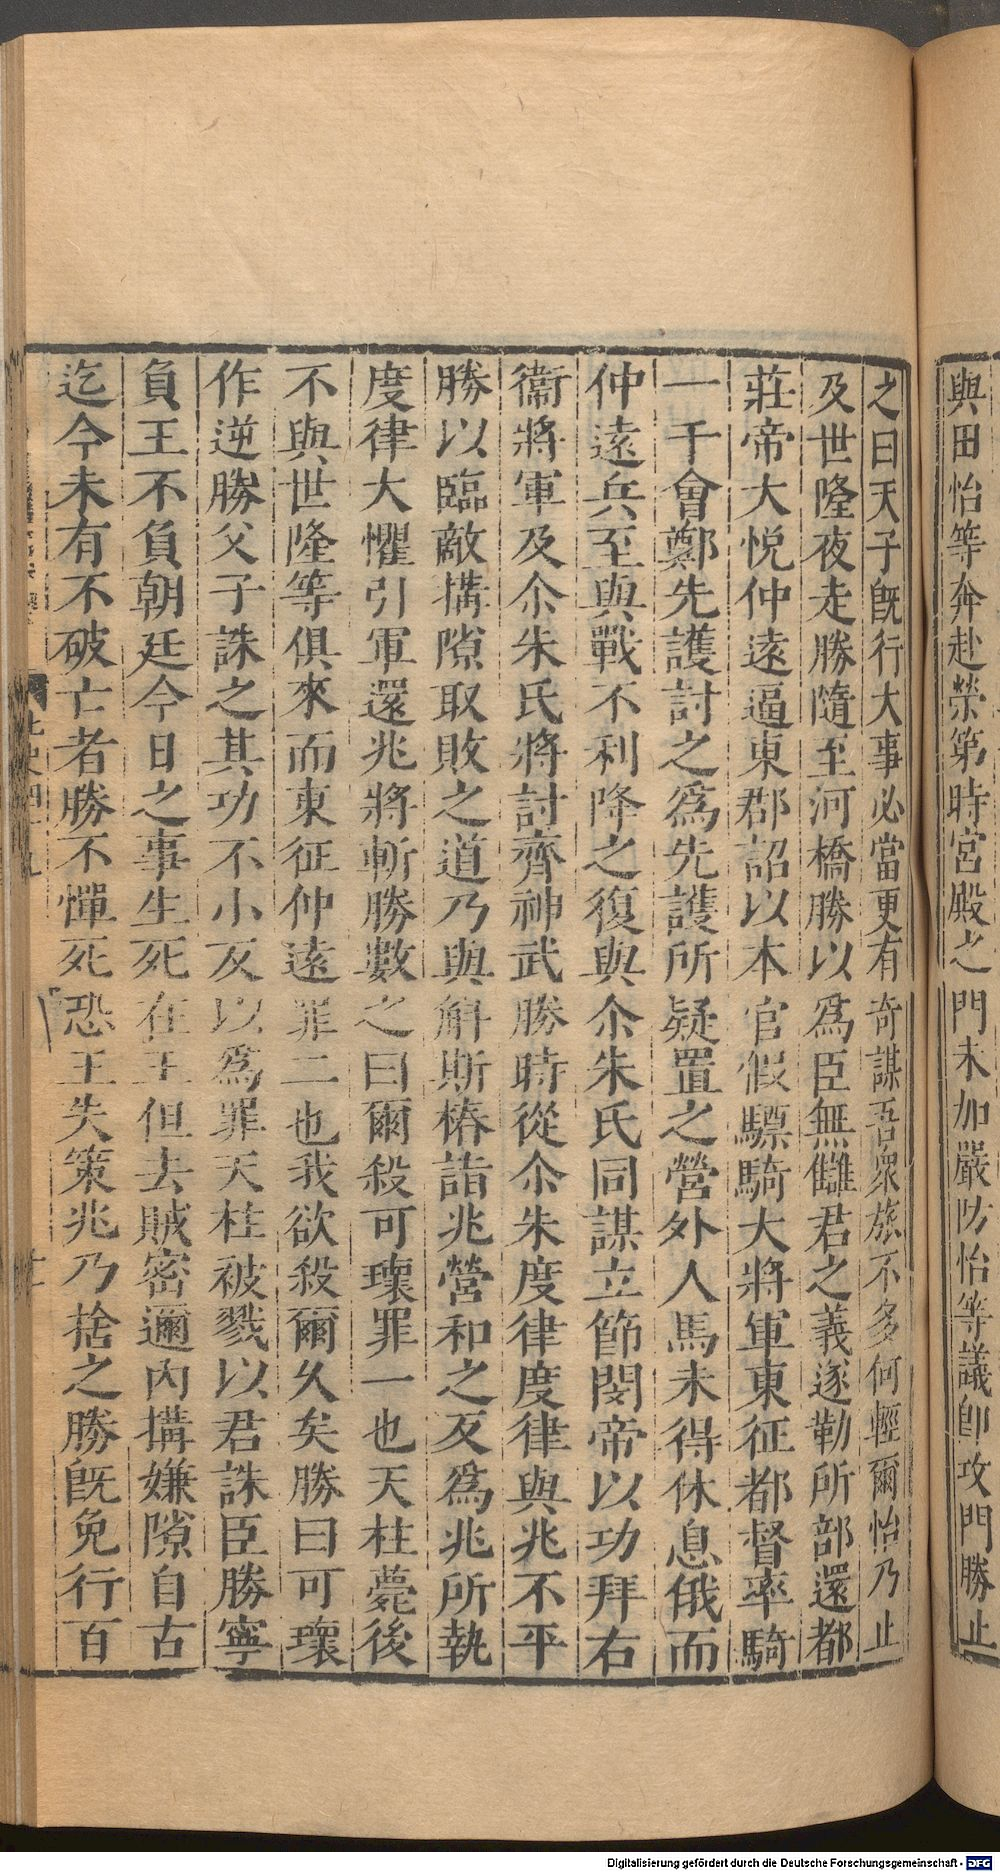 與田怡等奔赴榮第時宮殿之門未加嚴防怡等議卽攻門勝止
之曰天子旣行大事必當更有奇謀吾衆旅不多何輕爾怡乃止
及世隆夜走勝隨至河橋勝以爲臣無讎君之義遂勒所部還都
莊帝大悅仲遠逼東郡詔以本官假驃騎大將軍東征都督率騎
一千會鄭先護討之爲先護所疑置之營外人馬未得休息俄而
仲遠兵至與戰不利降之復與尒朱氏同謀立節閔帝以功拜右
衞將軍及尒朱氏將討齊神武勝時從尒朱度律度律與兆不平
勝以臨敵搆隙取敗之道乃與斛斯椿詣兆營和之反爲兆所執
度律大懼引軍還兆將斬勝數之曰爾殺可瓌罪一也天柱薨後
不與世隆等俱來而東征仲遠罪二也我欲殺爾久矣勝曰可瓌
作逆勝父子誅之其功不小反以爲罪天柱被戮以君誅臣勝寧
負王不負朝廷今日之事生死在王但去賊密邇內搆嫌隙自古
迄今未有不破亡者勝不憚死恐王失策兆乃捨之勝旣免行百
北史四十九
十一
Digitalisierung gefördert durch die Deutsche Forschungsgemeinschaft - DFG